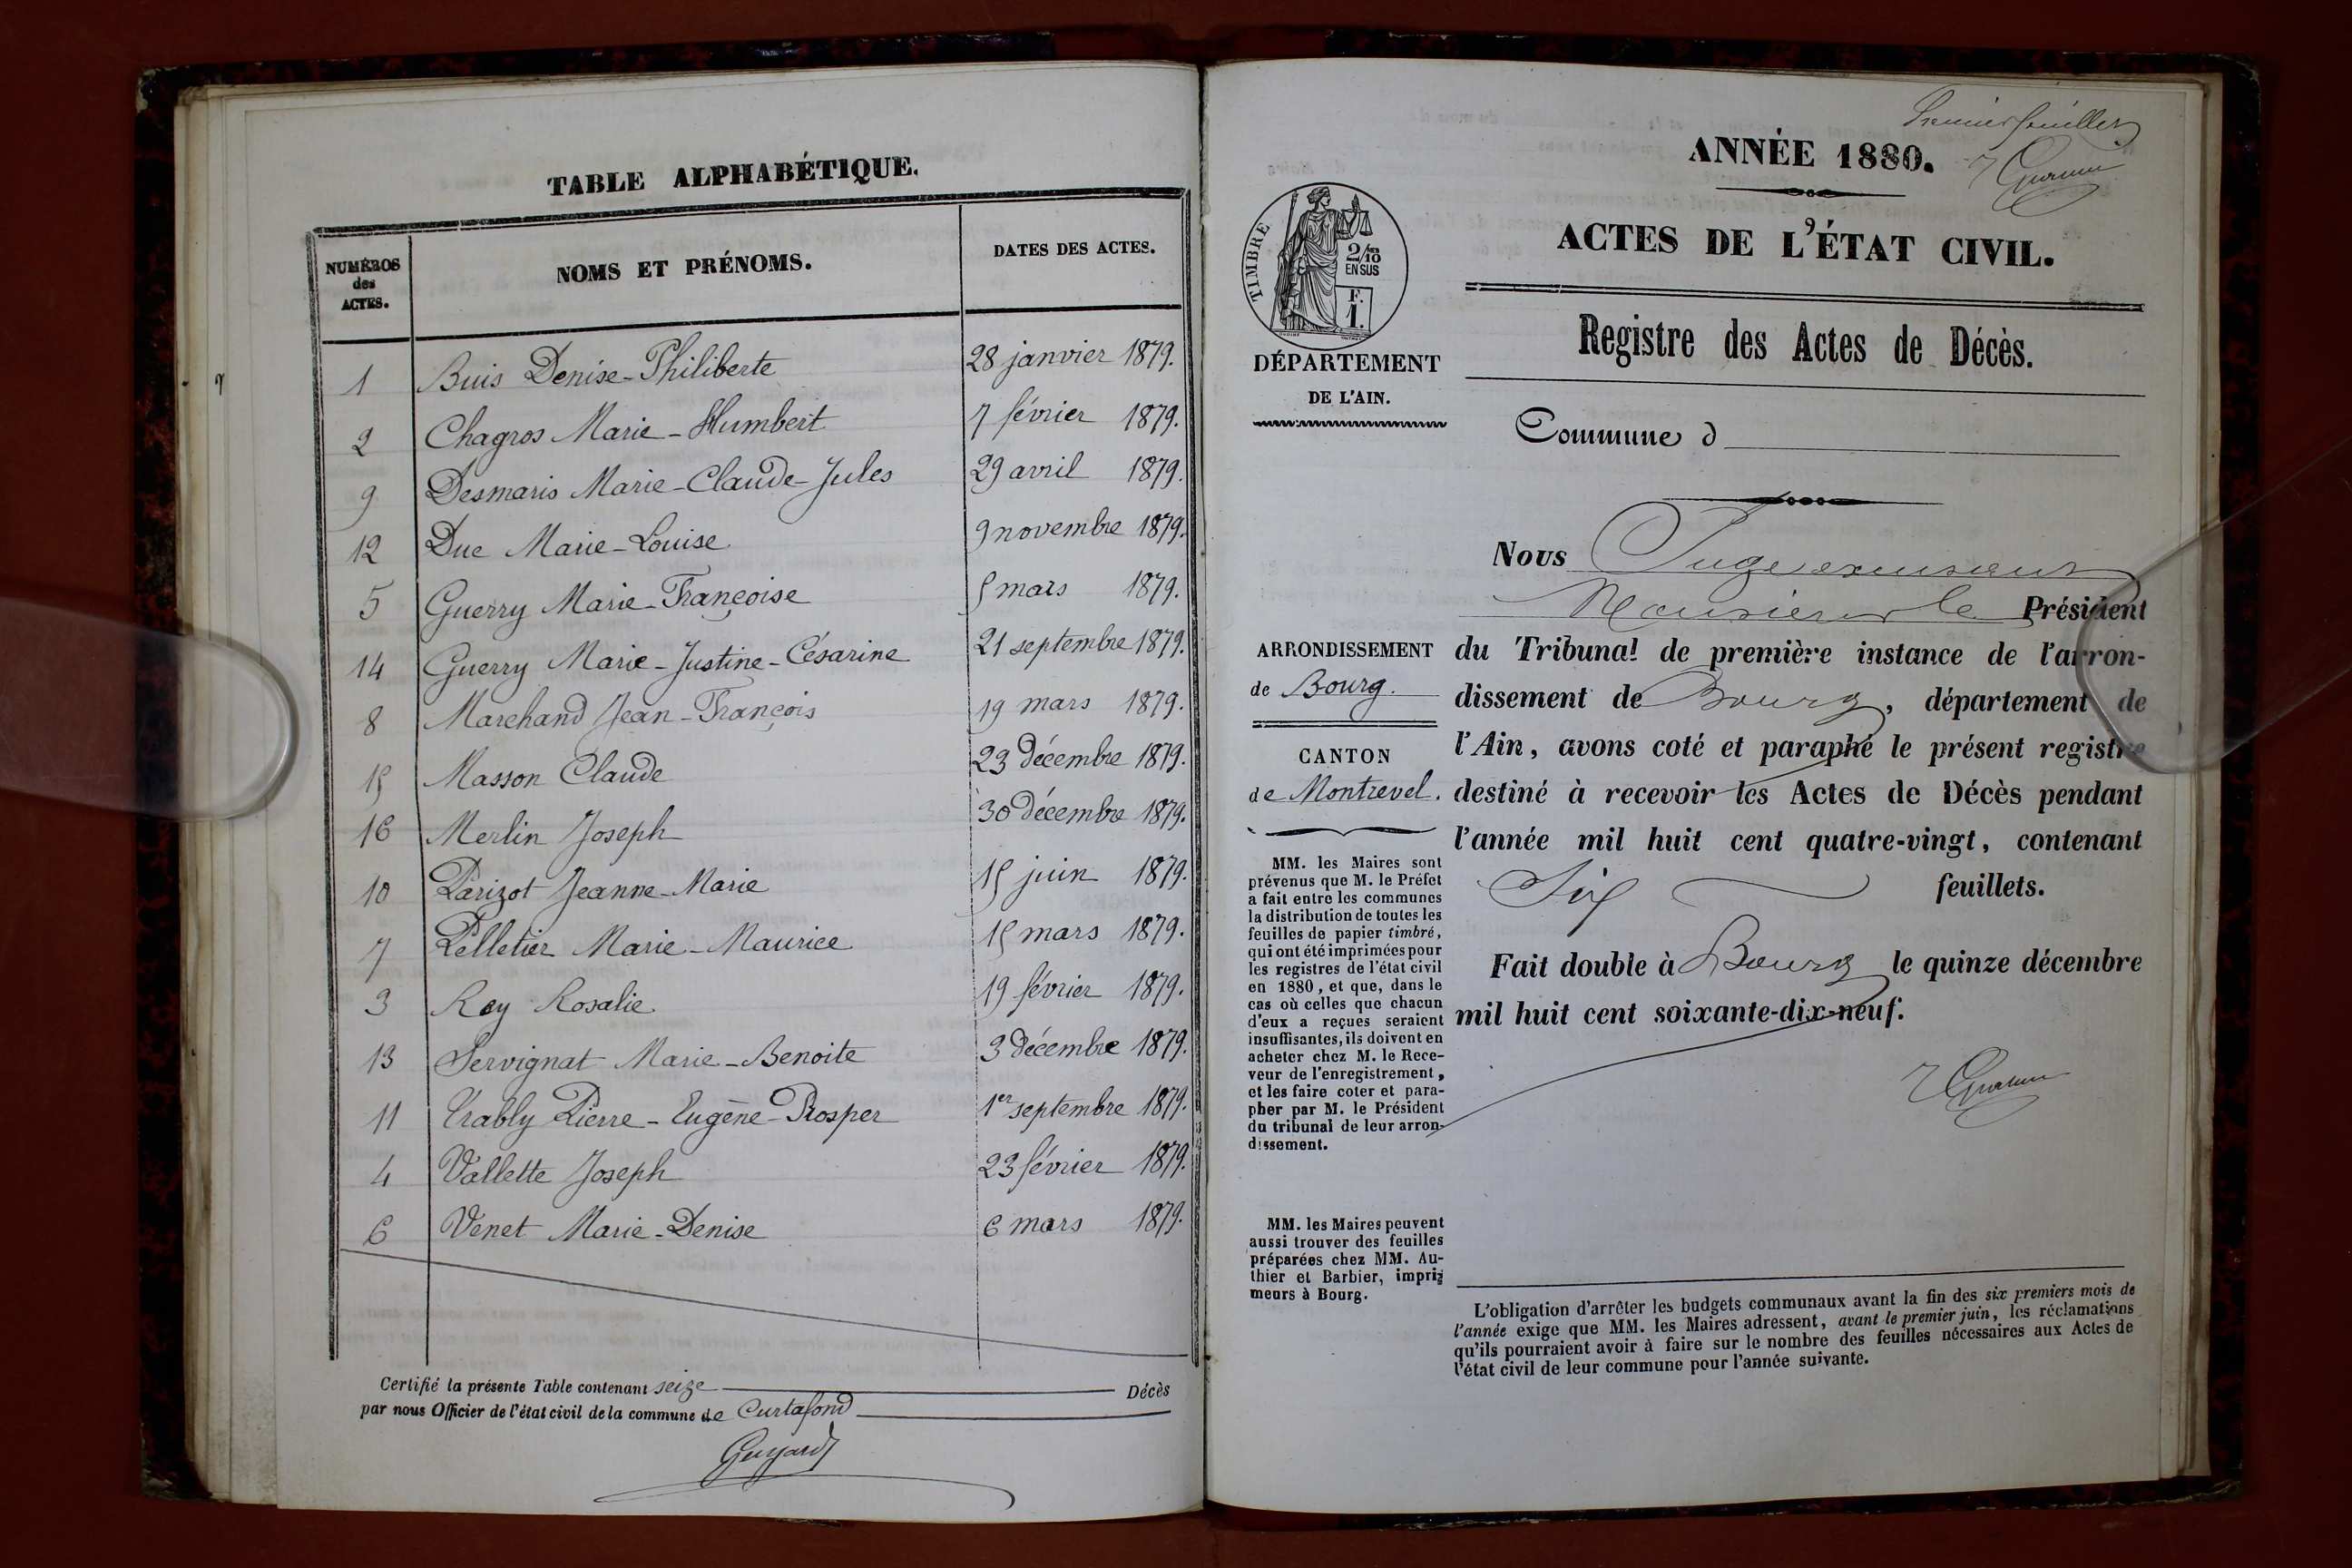 TABLE ALPHABÉTIQUE.
NUMÉROS des ACTES. NOMS ET PRÉNOMS. DATES DES ACTES.
1 Buis Denise-Philiberte 28 janvier 1879.
2 Chagros Marie-Humbert 7 février 1879.
9 Desmaris Marie-Claude-Jules 29 avril 1879.
12 Duc Marie-Louise 9 novembre 1879.
5 Guerry Marie-Françoise 5 mars 1879.
14 Guerry Marie-Justine-Césarine 21 septembre 1879.
8 Marchand Jean-François 19 mars 1879.
15 Masson Claude 23 décembre 1879.
16 Merlin Joseph 30 décembre 1879.
10 Parizot Jeanne-Marie 15 juin 1879.
7 Pelletier Marie-Maurice 15 mars 1879.
3 Rey Rosalie 19 février 1879.
13 Servignat Marie-Benoite 3 décembre 1879.
11 Trably Pierre-Eugène-Prosper 1er septembre 1879.
4 Vallette Joseph 23 février 1879.
6 Venet Marie-Denise 6 mars 1879.
Certifié la présente Table contenant seize Décès
par nous Officier de l'état civil de la commune de Curtafond
Guyard
Premier feuillet
ANNÉE 1880.
ACTES DE L'ÉTAT CIVIL.
Registre des Actes de Décès.
Commune d
TIMBRE
2/10
EN SUS
F.
1.
DÉPARTEMENT
DE L'AIN.
ARRONDISSEMENT
de Bourg.
CANTON
de Montrevel.
MM. les Maires sont
prévenus que M. le Préfet
a fait entre les communes
la distribution de toutes les
feuilles de papier timbré,
qui ont été imprimées pour
les registres de l'état civil
en 1880, et que, dans le
cas où celles que chacun
d'eux a reçues seraient
insuffisantes, ils doivent en
acheter chez M. le Rece-
veur de l'enregistrement,
et les faire coter et para-
pher par M. le Président
du tribunal de leur arron-
dissement.
MM. les Maires peuvent
aussi trouver des feuilles
préparées chez MM. Au-
thier et Barbier, impri-
meurs à Bourg.
Nous Juge
Monsieur le Président
du Tribunal de première instance de l'arron-
dissement de Bourg, département de
l'Ain, avons coté et paraphé le présent registre
destiné à recevoir les Actes de Décès pendant
l'année mil huit cent quatre-vingt, contenant
Six feuillets.
Fait double à Bourg le quinze décembre
mil huit cent soixante-dix-neuf.
L'obligation d'arrêter les budgets communaux avant la fin des six premiers mois de
l'année exige que MM. les Maires adressent, avant le premier juin, les réclamations
qu'ils pourraient avoir à faire sur le nombre des feuilles nécessaires aux Actes de
l'état civil de leur commune pour l'année suivante.